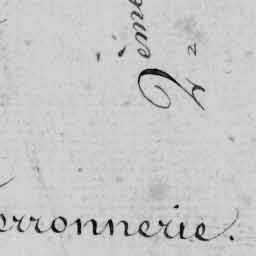 2ème
erronnerie.